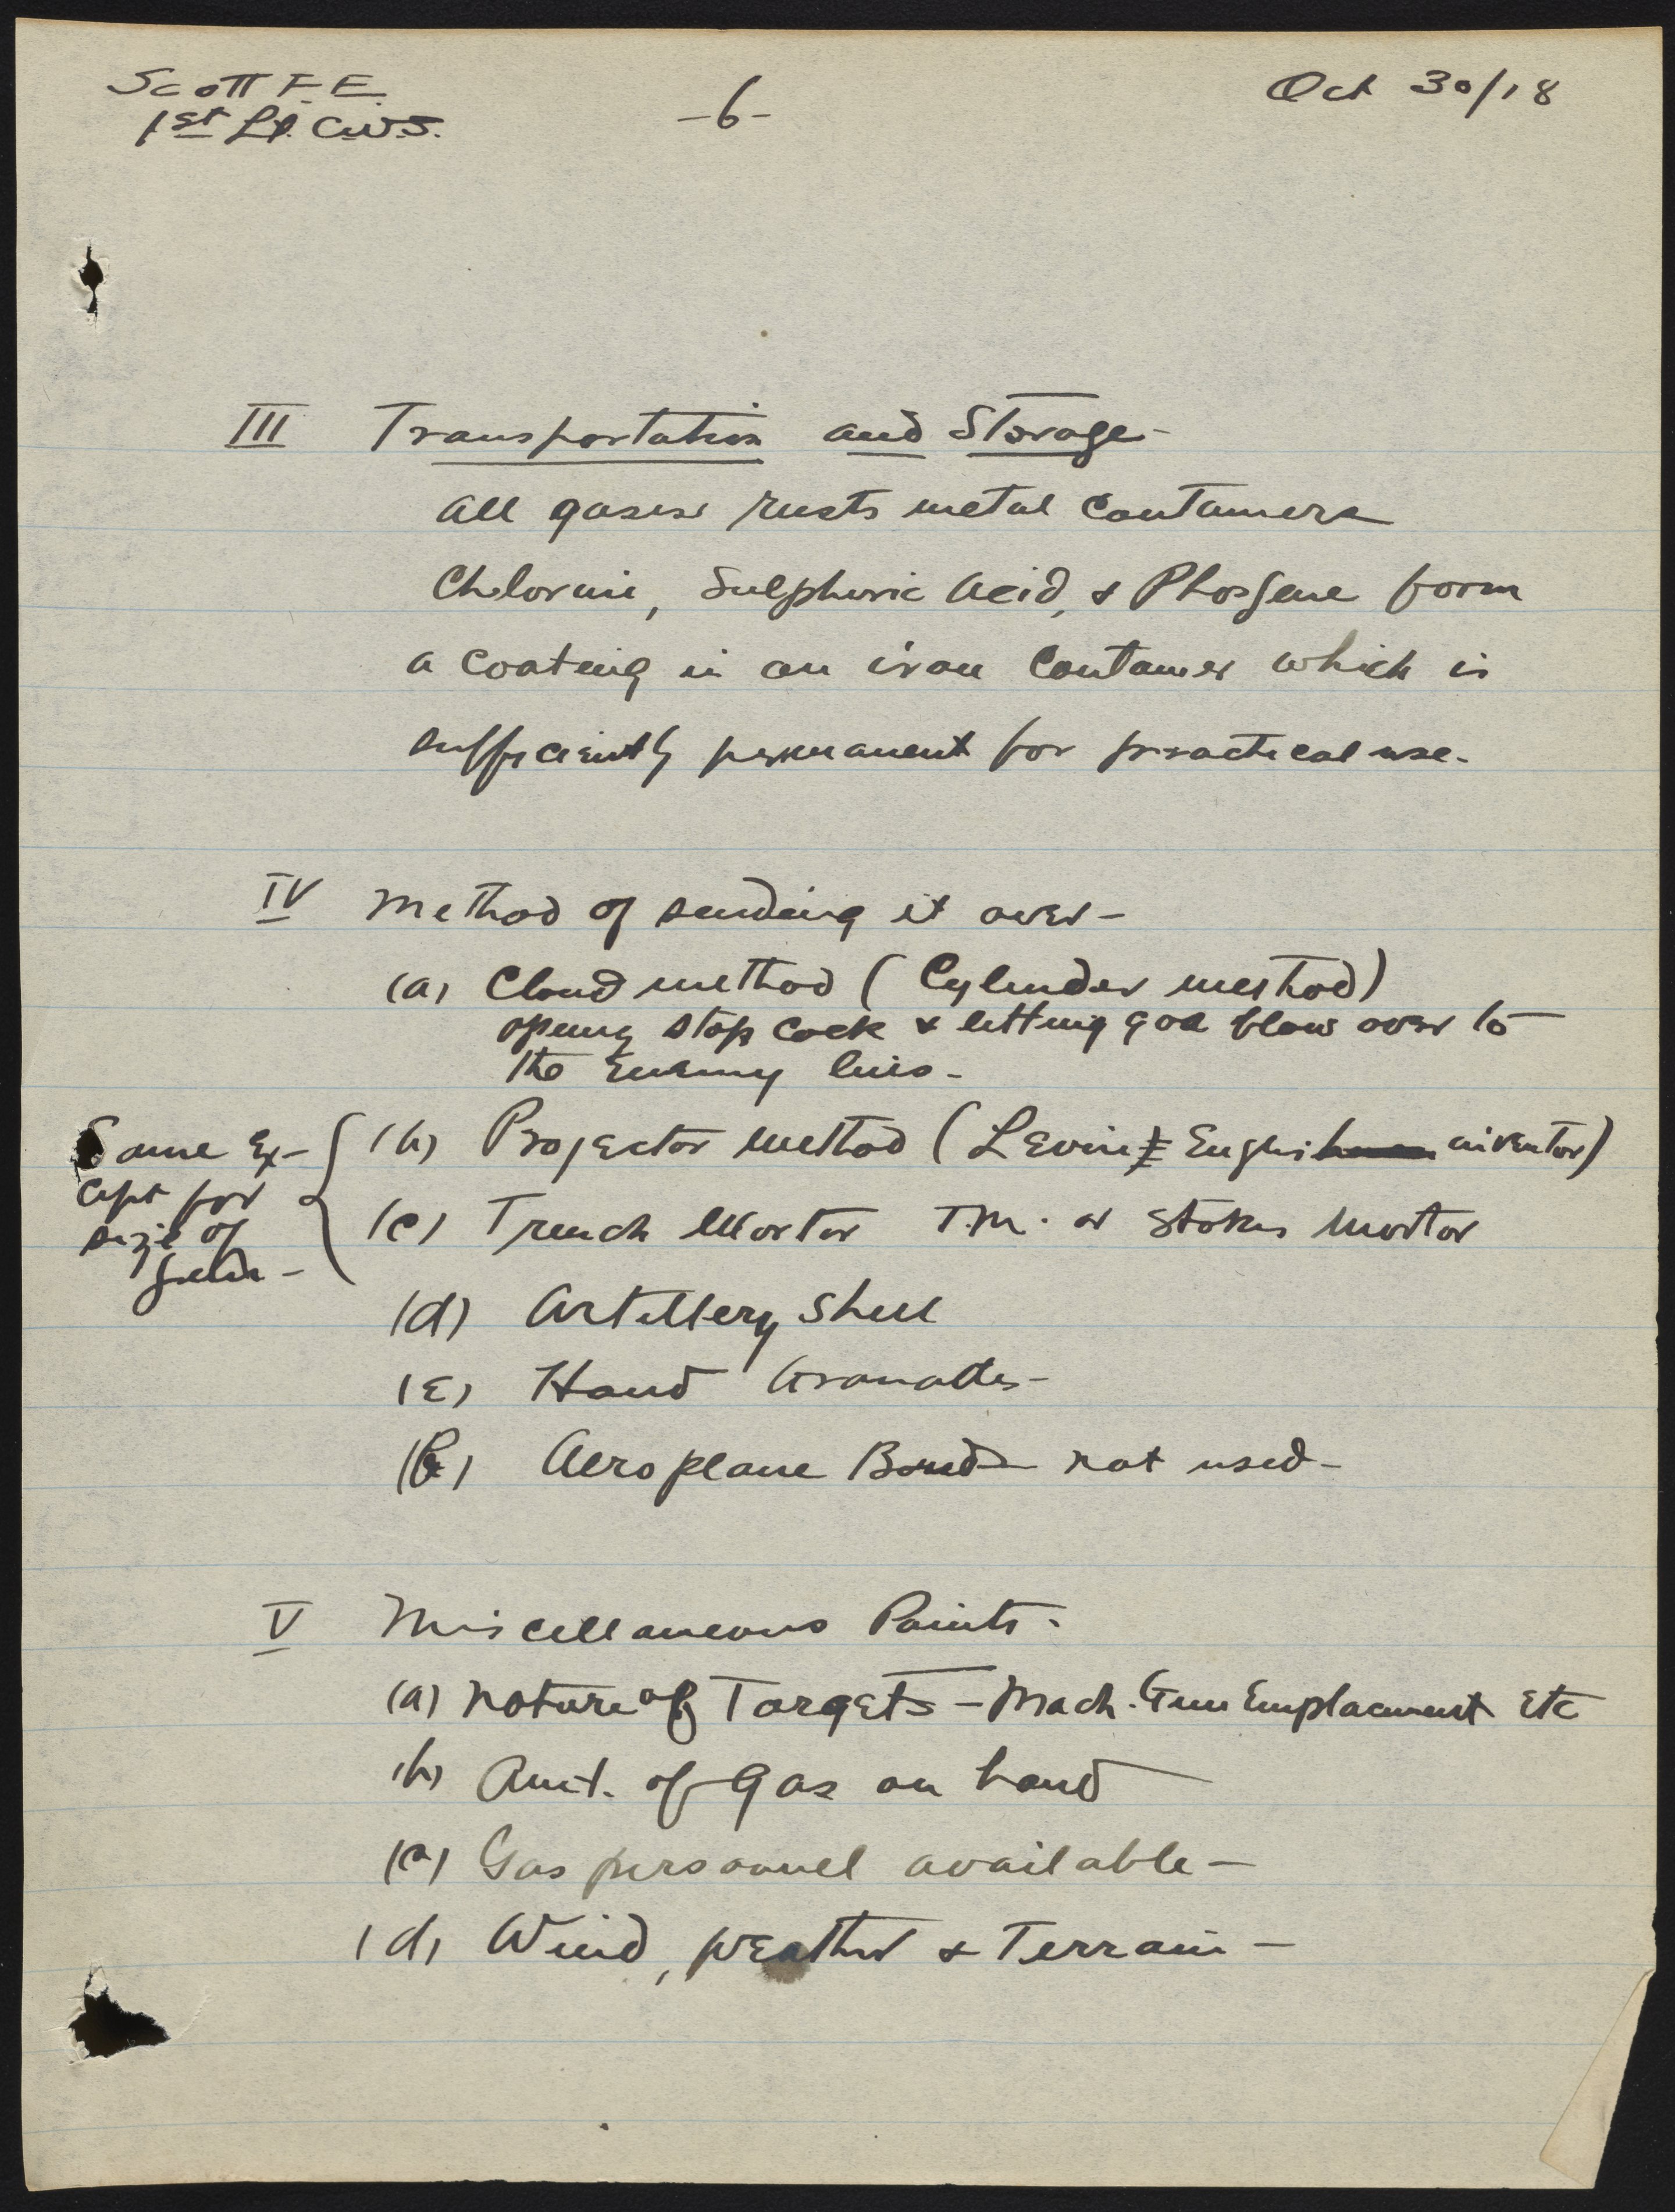 Scott F. E.
1st Lt. C.W.S.
-6-
Oct 30/18
III Transportation and Storage-
All gases rusts metal containers
Chlorine, Sulphuric Acid, & Phosgene form
a coating in an iron container which is
sufficiently permanent for practical use.
IV Method of sending it over-
(a) Cloud method (Cylinder method)
opening stop cock & letting gas blow over to
the Enemy lines-
Same Ex-
cept for
size of
(b) Projector method (Levins English inventor)
(c) Trench Mortar T.M. or Stokes Mortar
(d) Artillery Shell
(e) Hand Granattes-
(f) Aeroplane Bomb- not used-
V Miscellaneous Points-
(a) Nature of Targets - Mach. Gun Emplacement Etc
(b) Amt. of Gas on hand
(c) Gas personnel available-
(d) Wind, weather & Terrain-